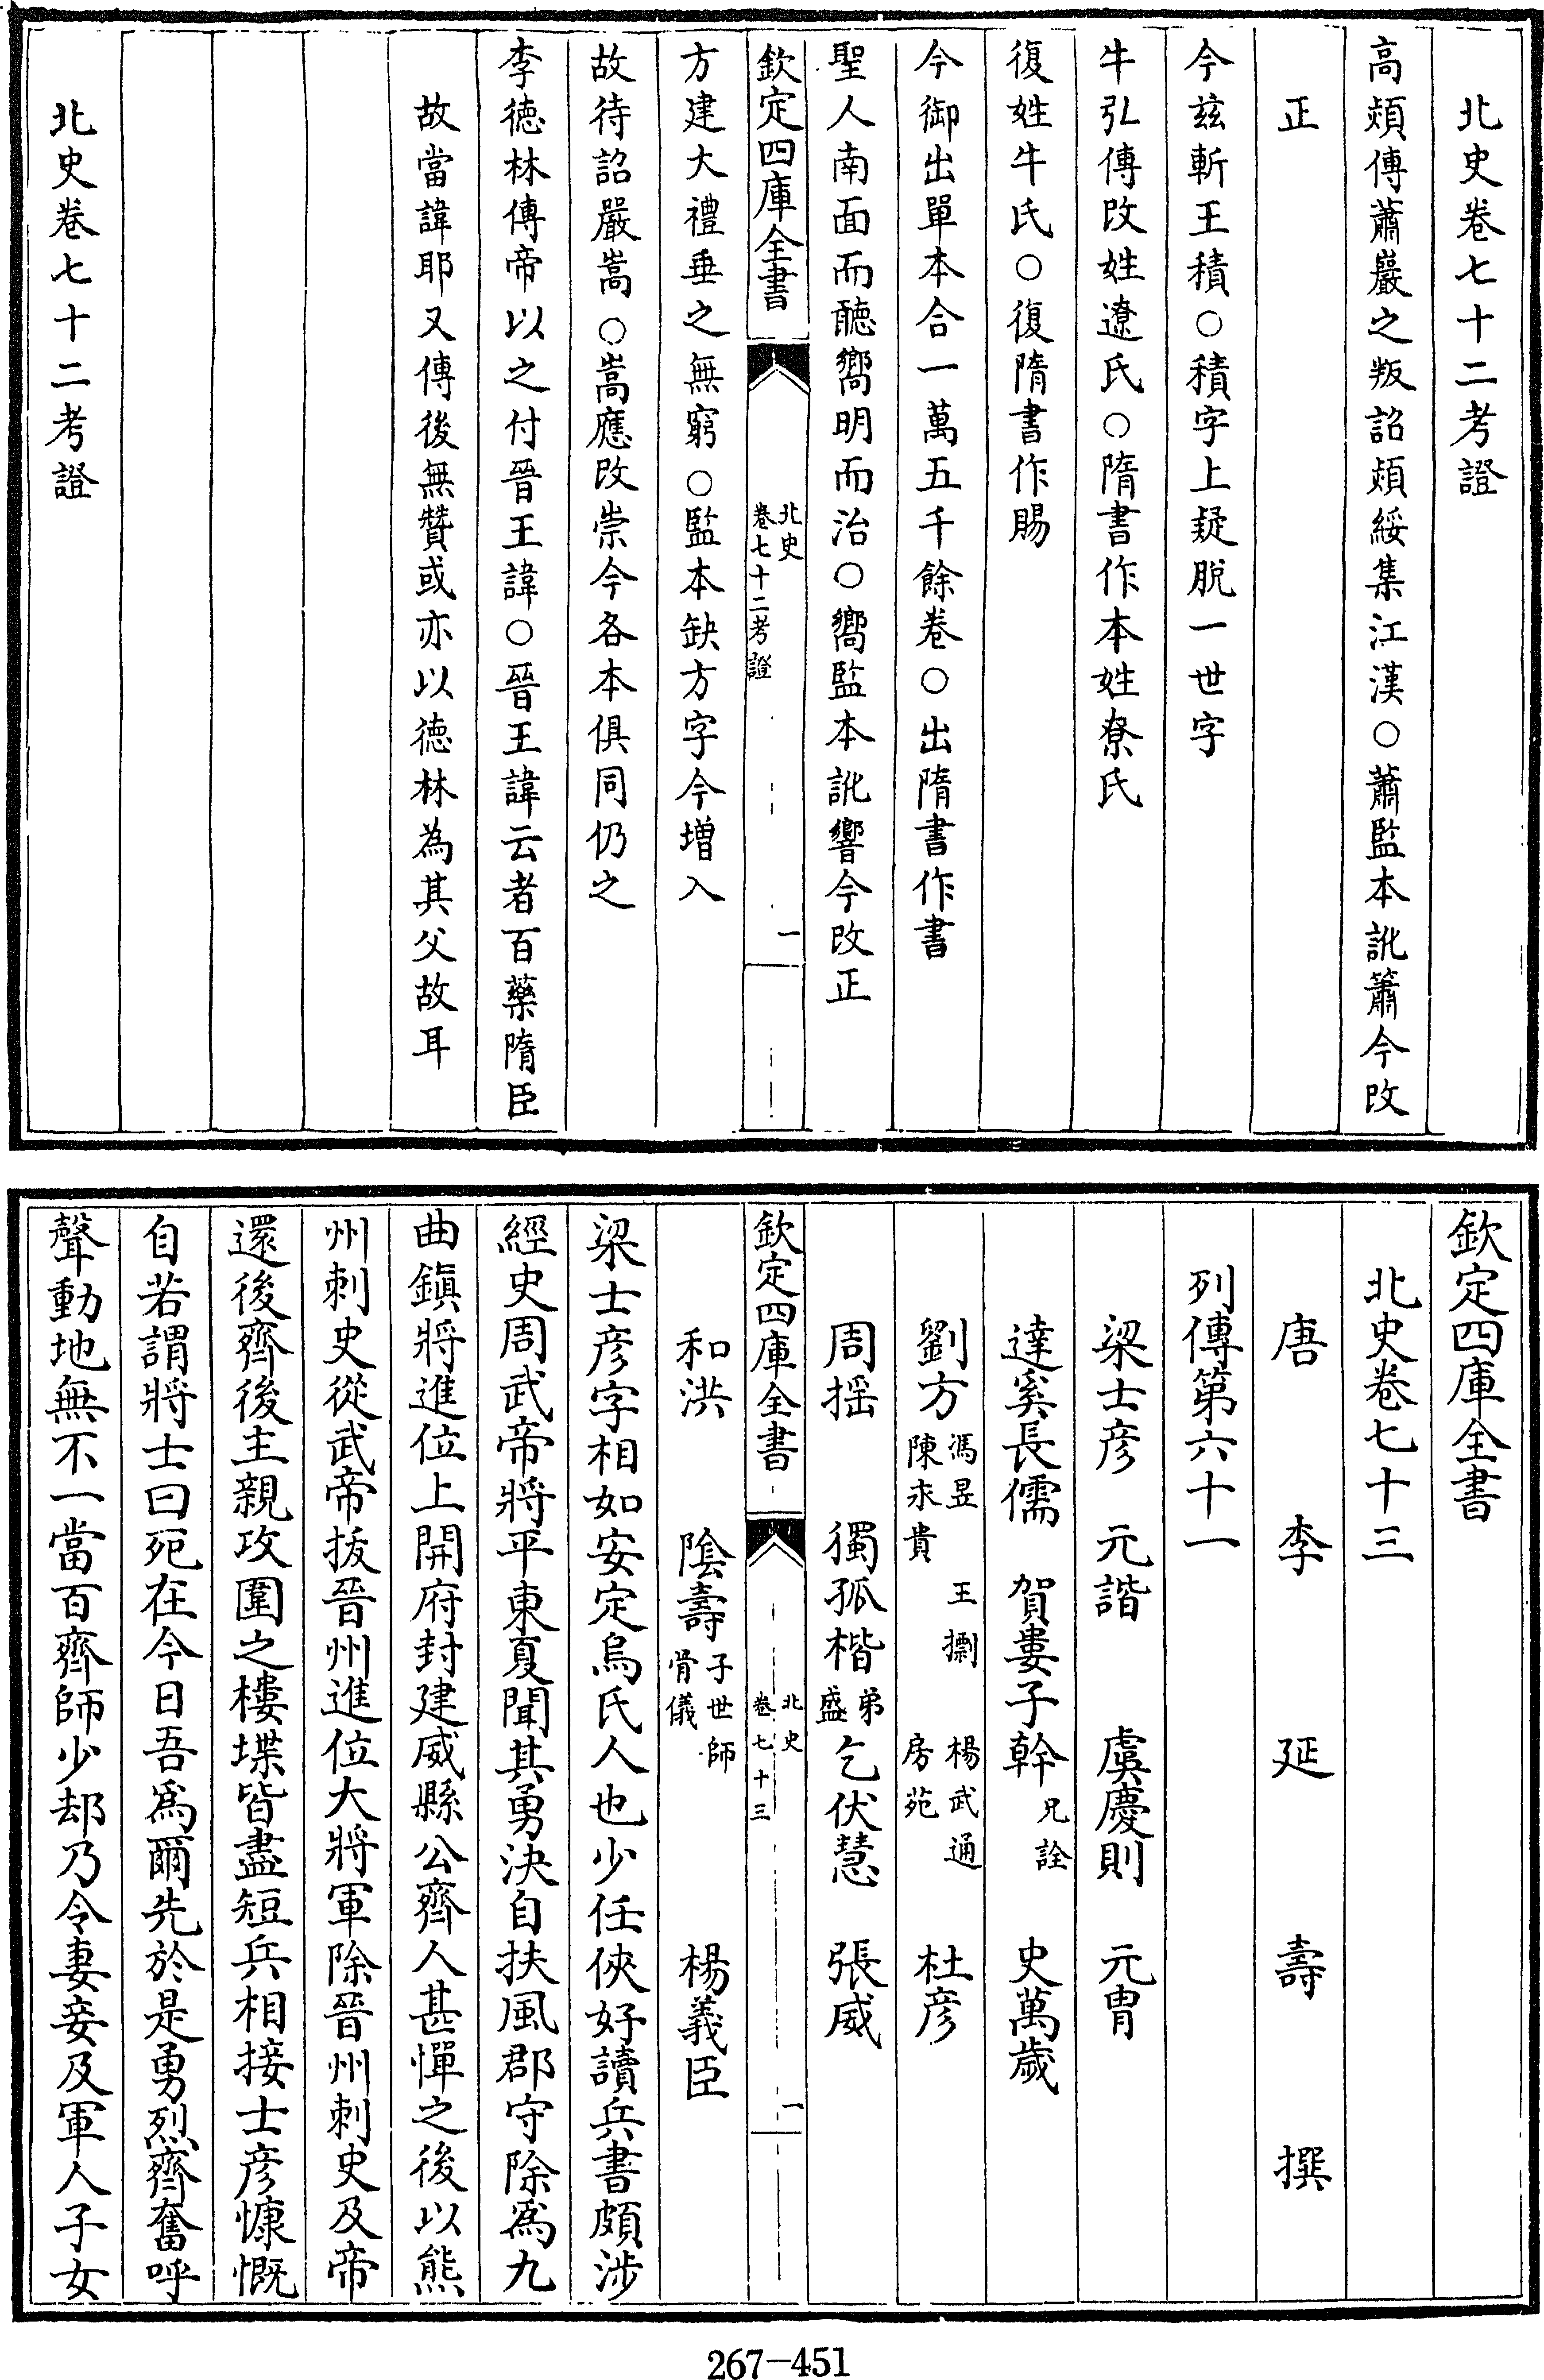 北史卷七十二考證
高熲傳蕭巖之叛詔熲綏集江漢○蕭監本訛簫今改
正
今兹斬王積○積字上疑脱一世字
牛弘傳改姓遼氏○隋書作本姓尞氏
復姓牛氏○復隋書作賜
今御出單本合一萬五千餘卷○出隋書作書
聖人南面而聽嚮明而治○嚮監本訛響今改正
欽定四庫全書
北史
卷七十二考證
一
方建大禮垂之無窮○監本缺方字今增入
故待詔嚴嵩○嵩應改崇今各本俱同仍之
李徳林傳帝以之付晉王諱○晉王諱云者百藥隋臣
故當諱耶又傳後無贊或亦以徳林為其父故耳
北史卷七十二考證
欽定四庫全書
北史卷七十三
唐 李 延 壽 撰
列傳第六十一
梁士彦 元諧 虞慶則 元胄
達奚長儒 賀婁子幹 兄詮 史萬歲
劉方 馮昱 王㔄 楊武通 陳永貴 房苑 杜彦
周揺 獨孤楷 弟盛 乞伏慧 張威
欽定四庫全書
北史
卷七十三
一
和洪 隂壽 子世師 骨儀 楊義臣
梁士彦字相如安定烏氏人也少任俠好讀兵書頗涉
經史周武帝將平東夏聞其勇決自扶風郡守除爲九
曲鎮將進位上開府封建威縣公齊人甚憚之後以熊
州刺史從武帝拔晉州進位大將軍除晉州刺史及帝
還後齊後主親攻圍之樓堞皆盡短兵相接士彦慷慨
自若謂將士曰死在今日吾爲爾先於是勇烈齊奮呼
聲動地無不一當百齊師少却乃令妻妾及軍人子女
267-451